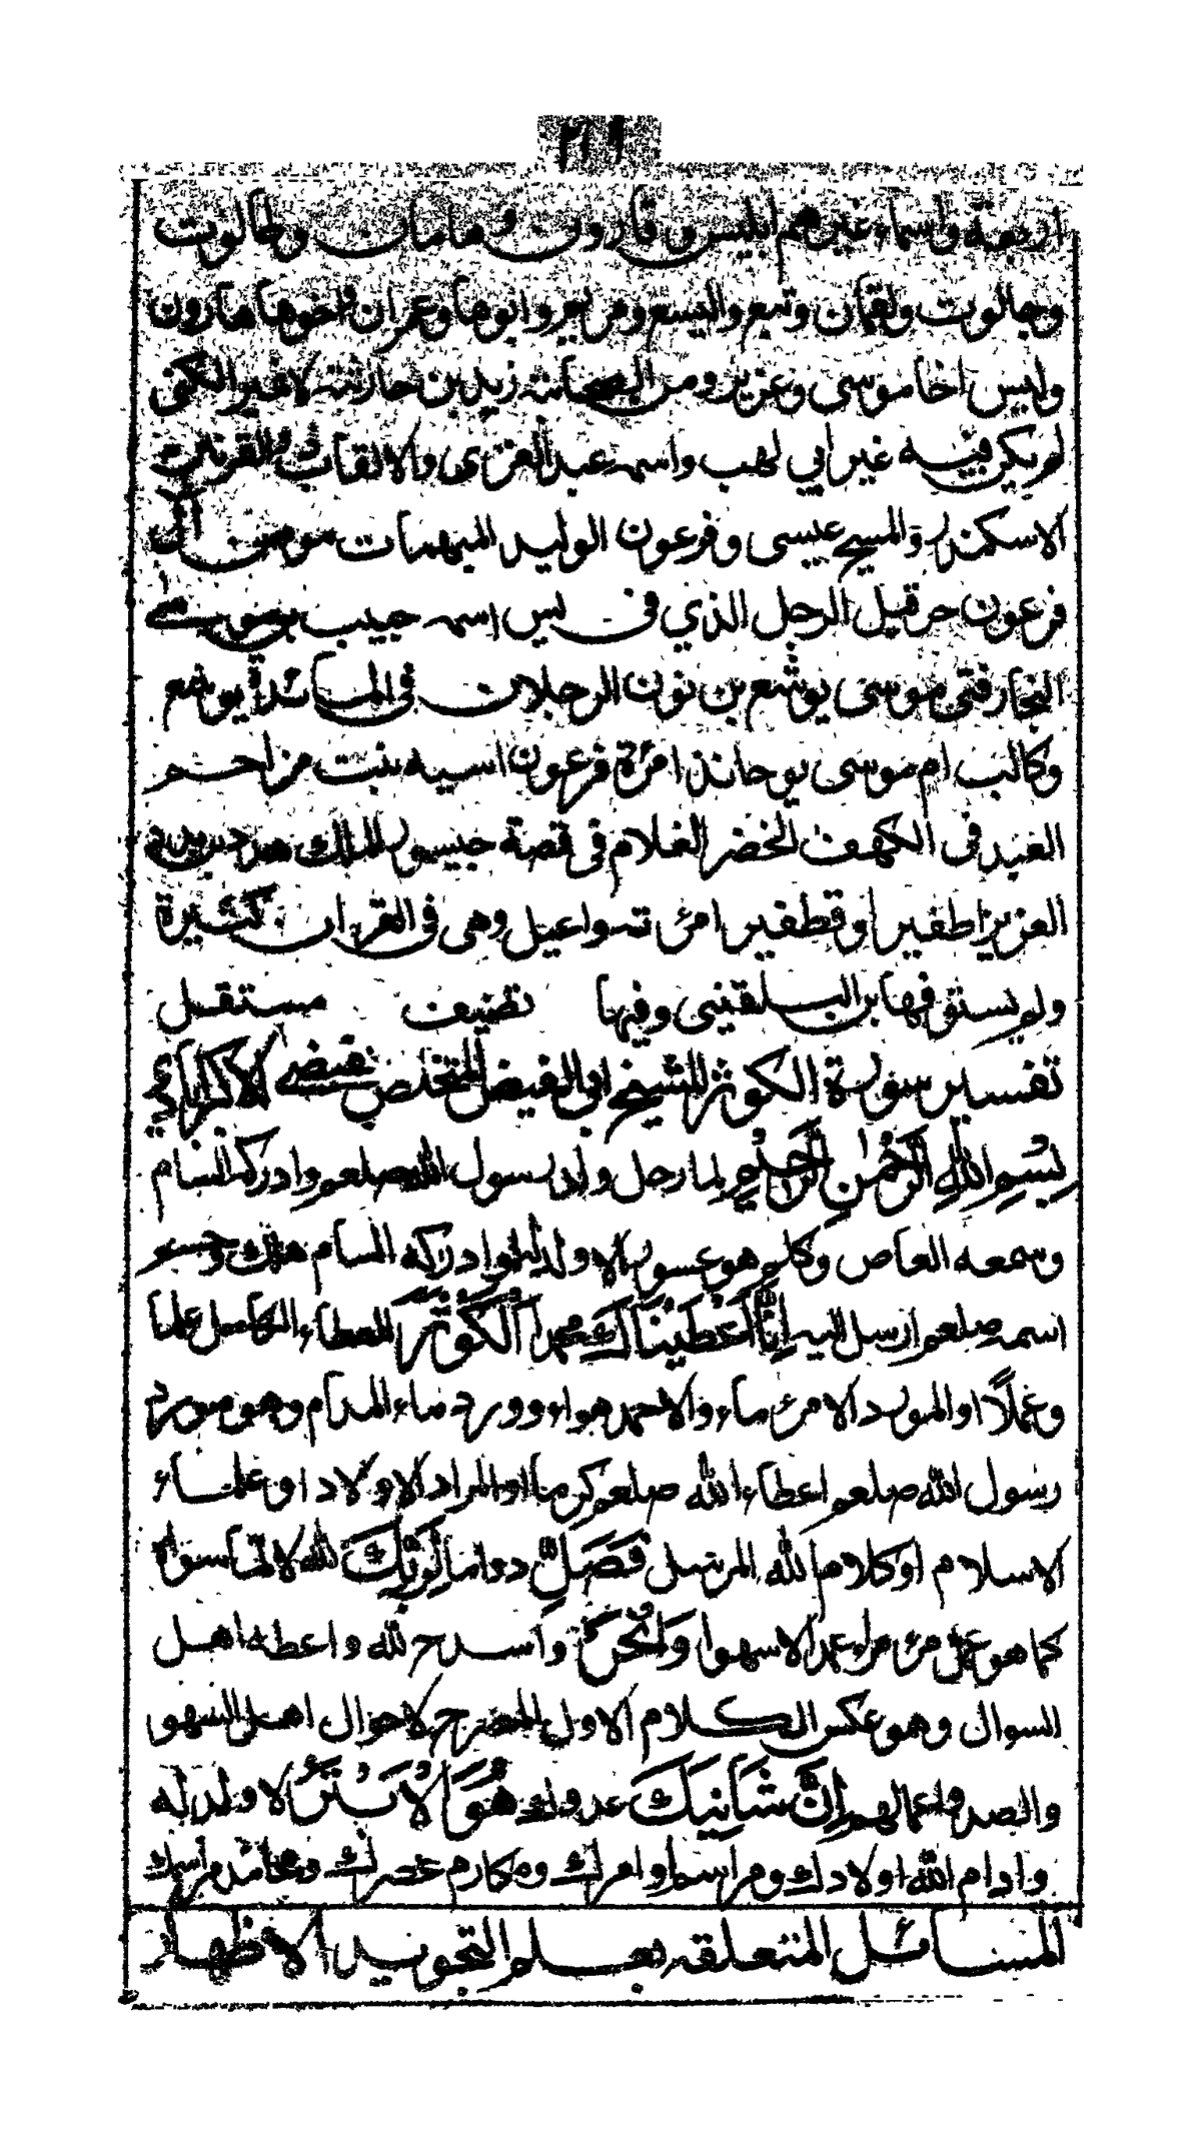 اربعة واسماء غيرهم ابليس وقارون وهامان وطالوت
وجالوت ولقمان وتبع واليسع ومريم وابوها وعمران واخوها هارون
وليس اخا موسى وعزير ومن الصحابة زيد بن حارثة لا غير الكنى
لم يكن فيه غير ابي لهب واسمه عبد العزى والالقاب ذو القرنين
الاسكندر والمسيح عيسى وفرعون الوليد المبهمات مومن آل
فرعون حزقيل الرجل الذي فى يس اسمه حبيب بن موسى
النجار فتى موسى يوشع بن نون الرجلان فى المائدة يوشع
وكالب ام موسى يوحانذ امرءة فرعون اسيه بنت مزاحم
العبد فى الكهف الخضر الغلام فى قصة حيسور الملك هدد
العزيز اطفير او قطفير امرئ وهى فى القران كثيرة
ولم يستوفها بن البلقينى وفيها تصنيف مستقل
تفسير سورة الكوثر للشيخ ابى الفيض المتخلص بفيضى الاكبرابادي
بسم الله الرحمن الرحيم لما رحل ولد رسول الله صلعم وادركه السام
وسمعه العاص وكلم هو عسور لا ولد له لو ادركه السام هلك
اسمه صلعم ارسل اليه انا اعطيناك محمد الكوثر العطاء الكامل علما
وعملا او المورد الامرئ ماء والاحمد هواء وورد ماء المدام وهو مورد
رسول الله صلعم اعطاء الله صلعم كرما او المراد الاولاد او علماء
الاسلام او كلام الله المرسل فصل دواما لربك لله لا لما سواه
كما هو عمل مرء مراء عمدا لا سهوا وانحر واسدح لله واعطه اهل
السوال وهو عكس الكلام الاول المصرح لاحوال اهل السهو
والصد واعمالهم ان شانئك عدوك هو الابتر لا ولد له
وادام الله اولادك ومراسم اوامرك ومكارم عصرك ومحامد مراسمك
المسائل المتعلقه بعلم التجويد الاظهار